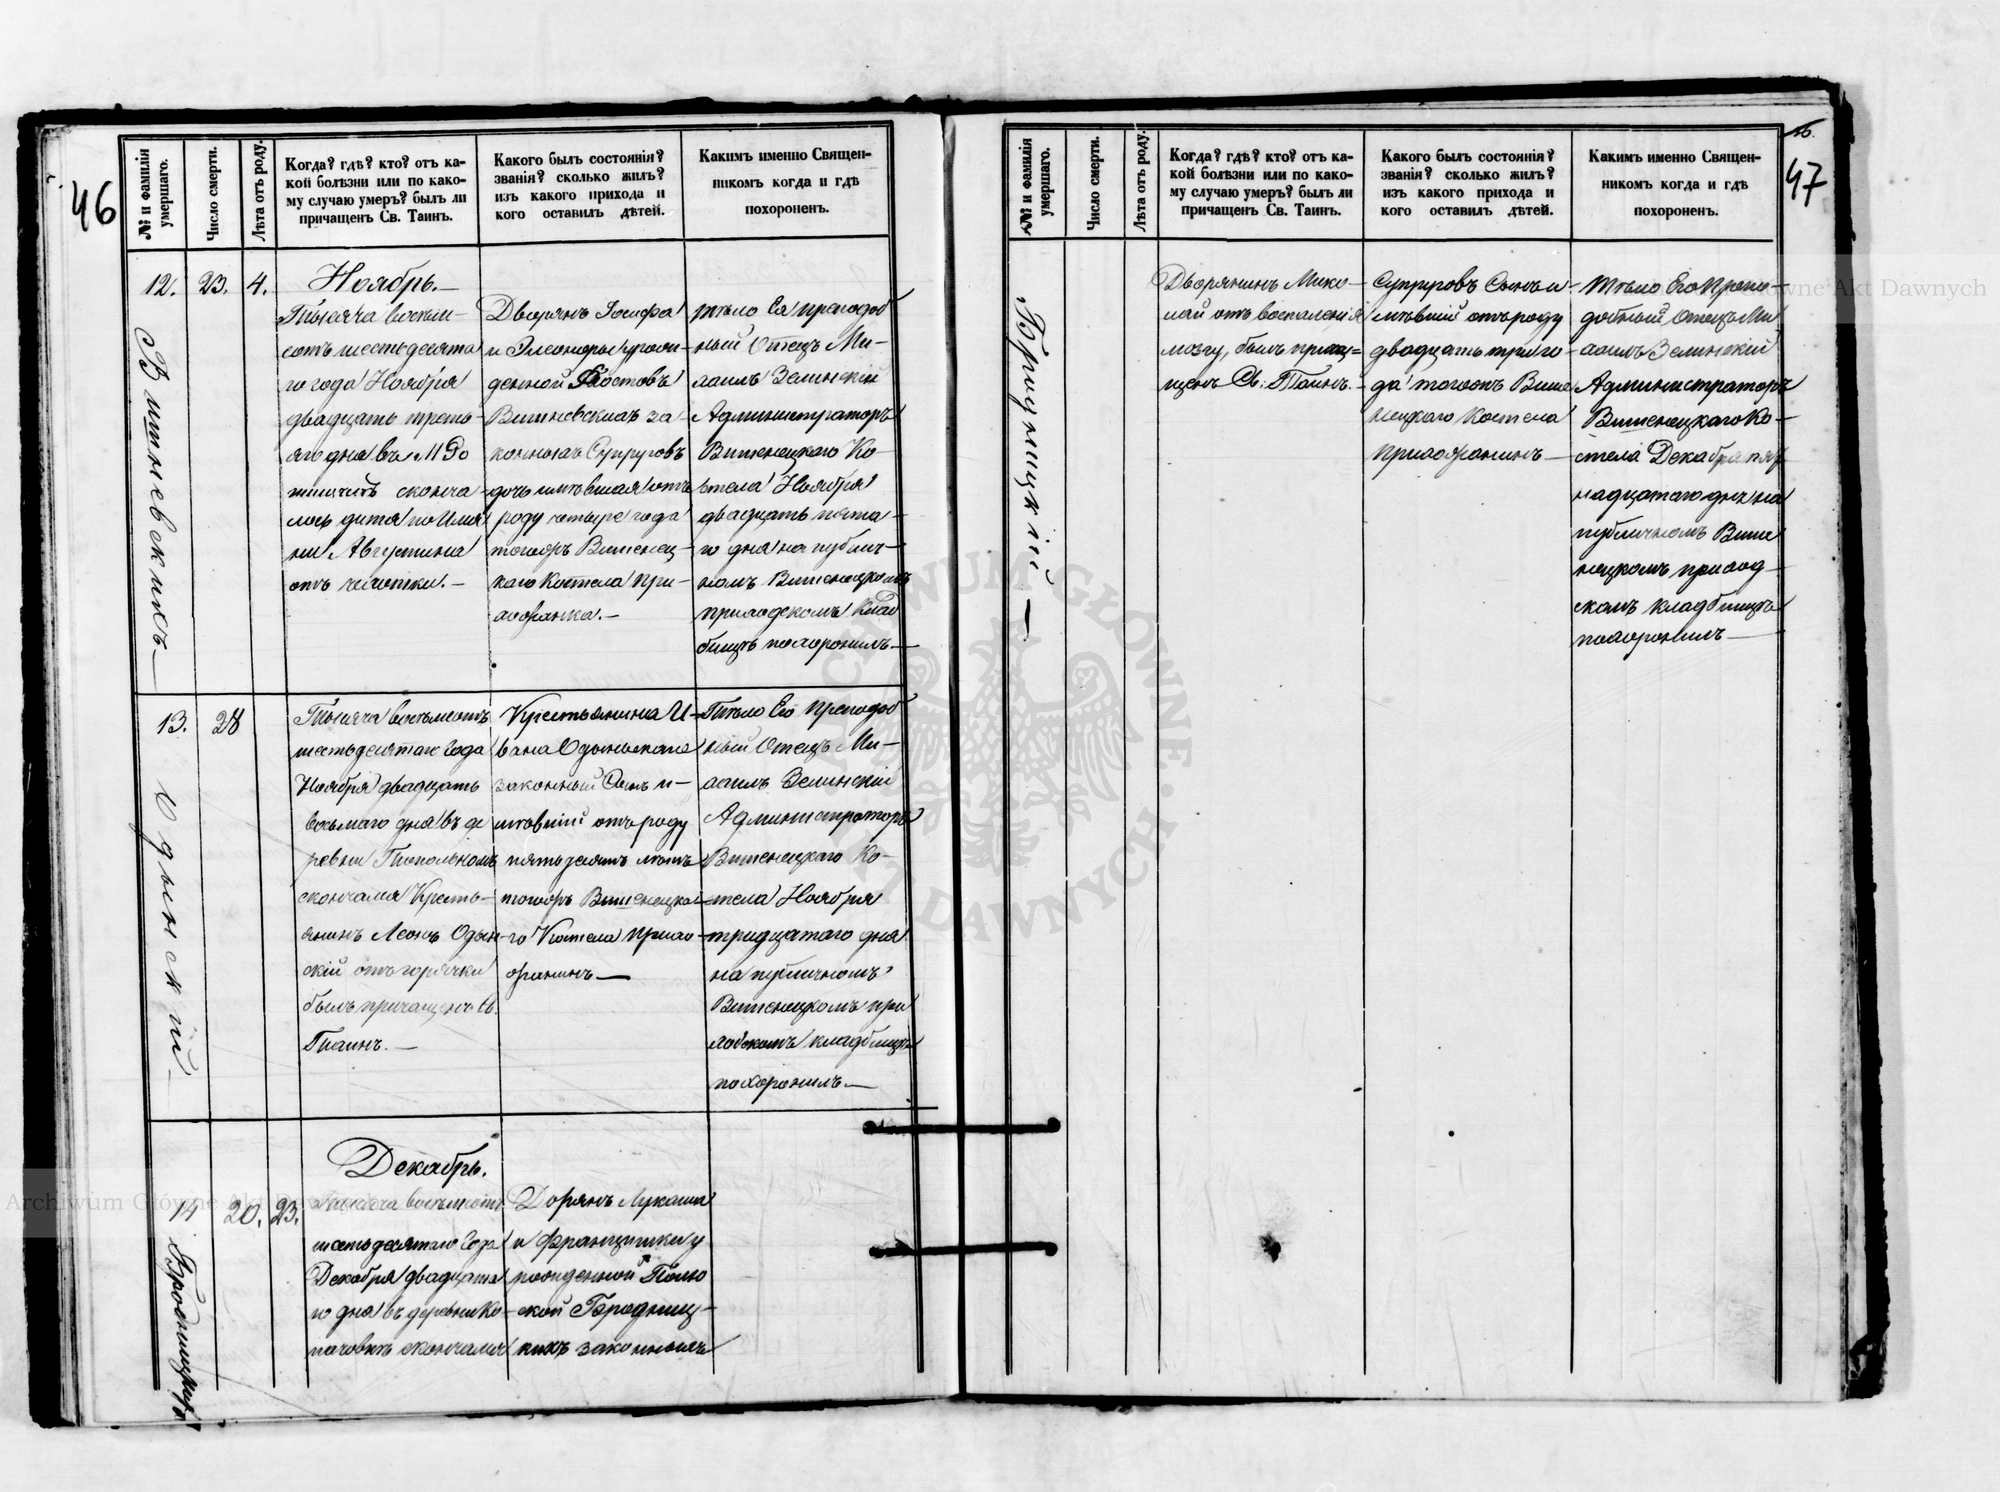 46
№ и фамилія умершаго.
Число смерти.
Лѣта отъ роду.
Когда? гдѣ? кто? отъ ка-
кой болѣзни или по како-
му случаю умеръ? былъ ли
причащенъ Св. Таинъ.
Какого былъ состоянія?
званія? сколько жилъ?
изъ какого прихода и
кого оставилъ дѣтей.
Какимъ именно Священ-
никомъ когда и гдѣ
похороненъ.
12.
23.
4.
Вишневскихъ
Ноябрь.
Тысяча восьми-
сотъ шестьдесята
го года Ноября
двадцать треть-
яго дня въ М
сконча
лось дитя по Име
ни Августина
отъ чахотки.
Дворянъ Іосифа
и Элеоноры урож-
денной Ростовъ
Вишневскихъ за-
конныхъ Супруговъ
дочь имѣвшая отъ
роду четыре года
тогожъ Вишенец-
каго Костела при-
хожанка.
Тѣло Ея преподоб
ный Отецъ Ми-
хаилъ Зелинскій
Администраторъ
Вишенецкаго Ко-
стела Ноября
двадцать пята-
го дня на публич-
номъ Вишенецкомъ
приходскомъ клад
бищѣ похоронилъ
13.
28
Одынскій
Тысяча восемьсотъ
шестьдесятаго Года
Ноября двадцать
восьмаго дня въ де
ревни Топольномъ
скончался Кресть-
янинъ Леонъ Одын-
скій отъ горячки
былъ причащенъ Св.
Таинъ.
Крестьянина И-
вана Одынскаго
законный Сынъ и-
мѣвший отъ роду
пятьдесятъ лѣтъ
тогожъ Вишенецка-
го Костела прихо-
жанинъ
Тѣло Его преподоб
ный Отецъ Ми-
хаилъ Зелинскій
Администраторъ
Вишенецкаго Ко-
стела Ноября
тридцатаго дня
на публичномъ
Вишенецкомъ при
ходскомъ кладбищѣ
похоронилъ
14
20.
23.
Бродницкій
Декабрь.
Тысяча восемьсотъ
шестьдесятаго Года
Декабря двадцата
го дня въ деревни Ко-
скончался
Дорянъ Лукаша
и Францишки у
рожденной
ской Бродниц-
кихъ законныхъ
47
№ и фамилія умершаго.
Число смерти.
Лѣта отъ роду.
Когда? гдѣ? кто? отъ ка-
кой болѣзни или по како-
му случаю умеръ? былъ ли
причащенъ Св. Таинъ.
Какого былъ состоянія?
званія? сколько жилъ?
изъ какого прихода и
кого оставилъ дѣтей.
Какимъ именно Священ-
никомъ когда и гдѣ
похороненъ.
Бродницкій
Дворянинъ Мико-
лай отъ воспаленія
мозгу, былъ прича=
щенъ Св: Таинъ.
Супруговъ Сынъ и-
мѣвший отъ роду
двадцать три го-
да тогожъ Више
нецкаго Костела
прихожанинъ
Тѣло Его Препо-
добный Отецъ Ми
хаилъ Зелинскій
Администраторъ
Вишенецкаго Ко-
стела Декабря
надцатаго дня на
публичномъ Више
нецкомъ приход-
скомъ кладбищѣ
похоронилъ
Archiwum Główne Akt Dawnych
ARCHIWUM GŁÓWNE AKT DAWNYCH